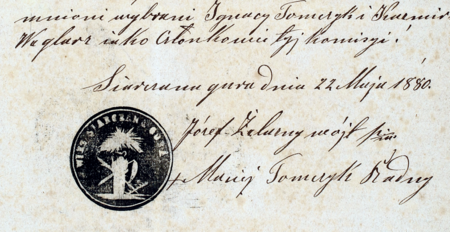 mnioni wybrani Ignacy Tomczyk i Kazmirz
Węglarz jako Członkowie tyj komisyi!
Siarczana gura dnia 22 Maja 1880.
Józef Żelazny wójt
Maciej Tomczyk Radny
SIARCZANA GURA